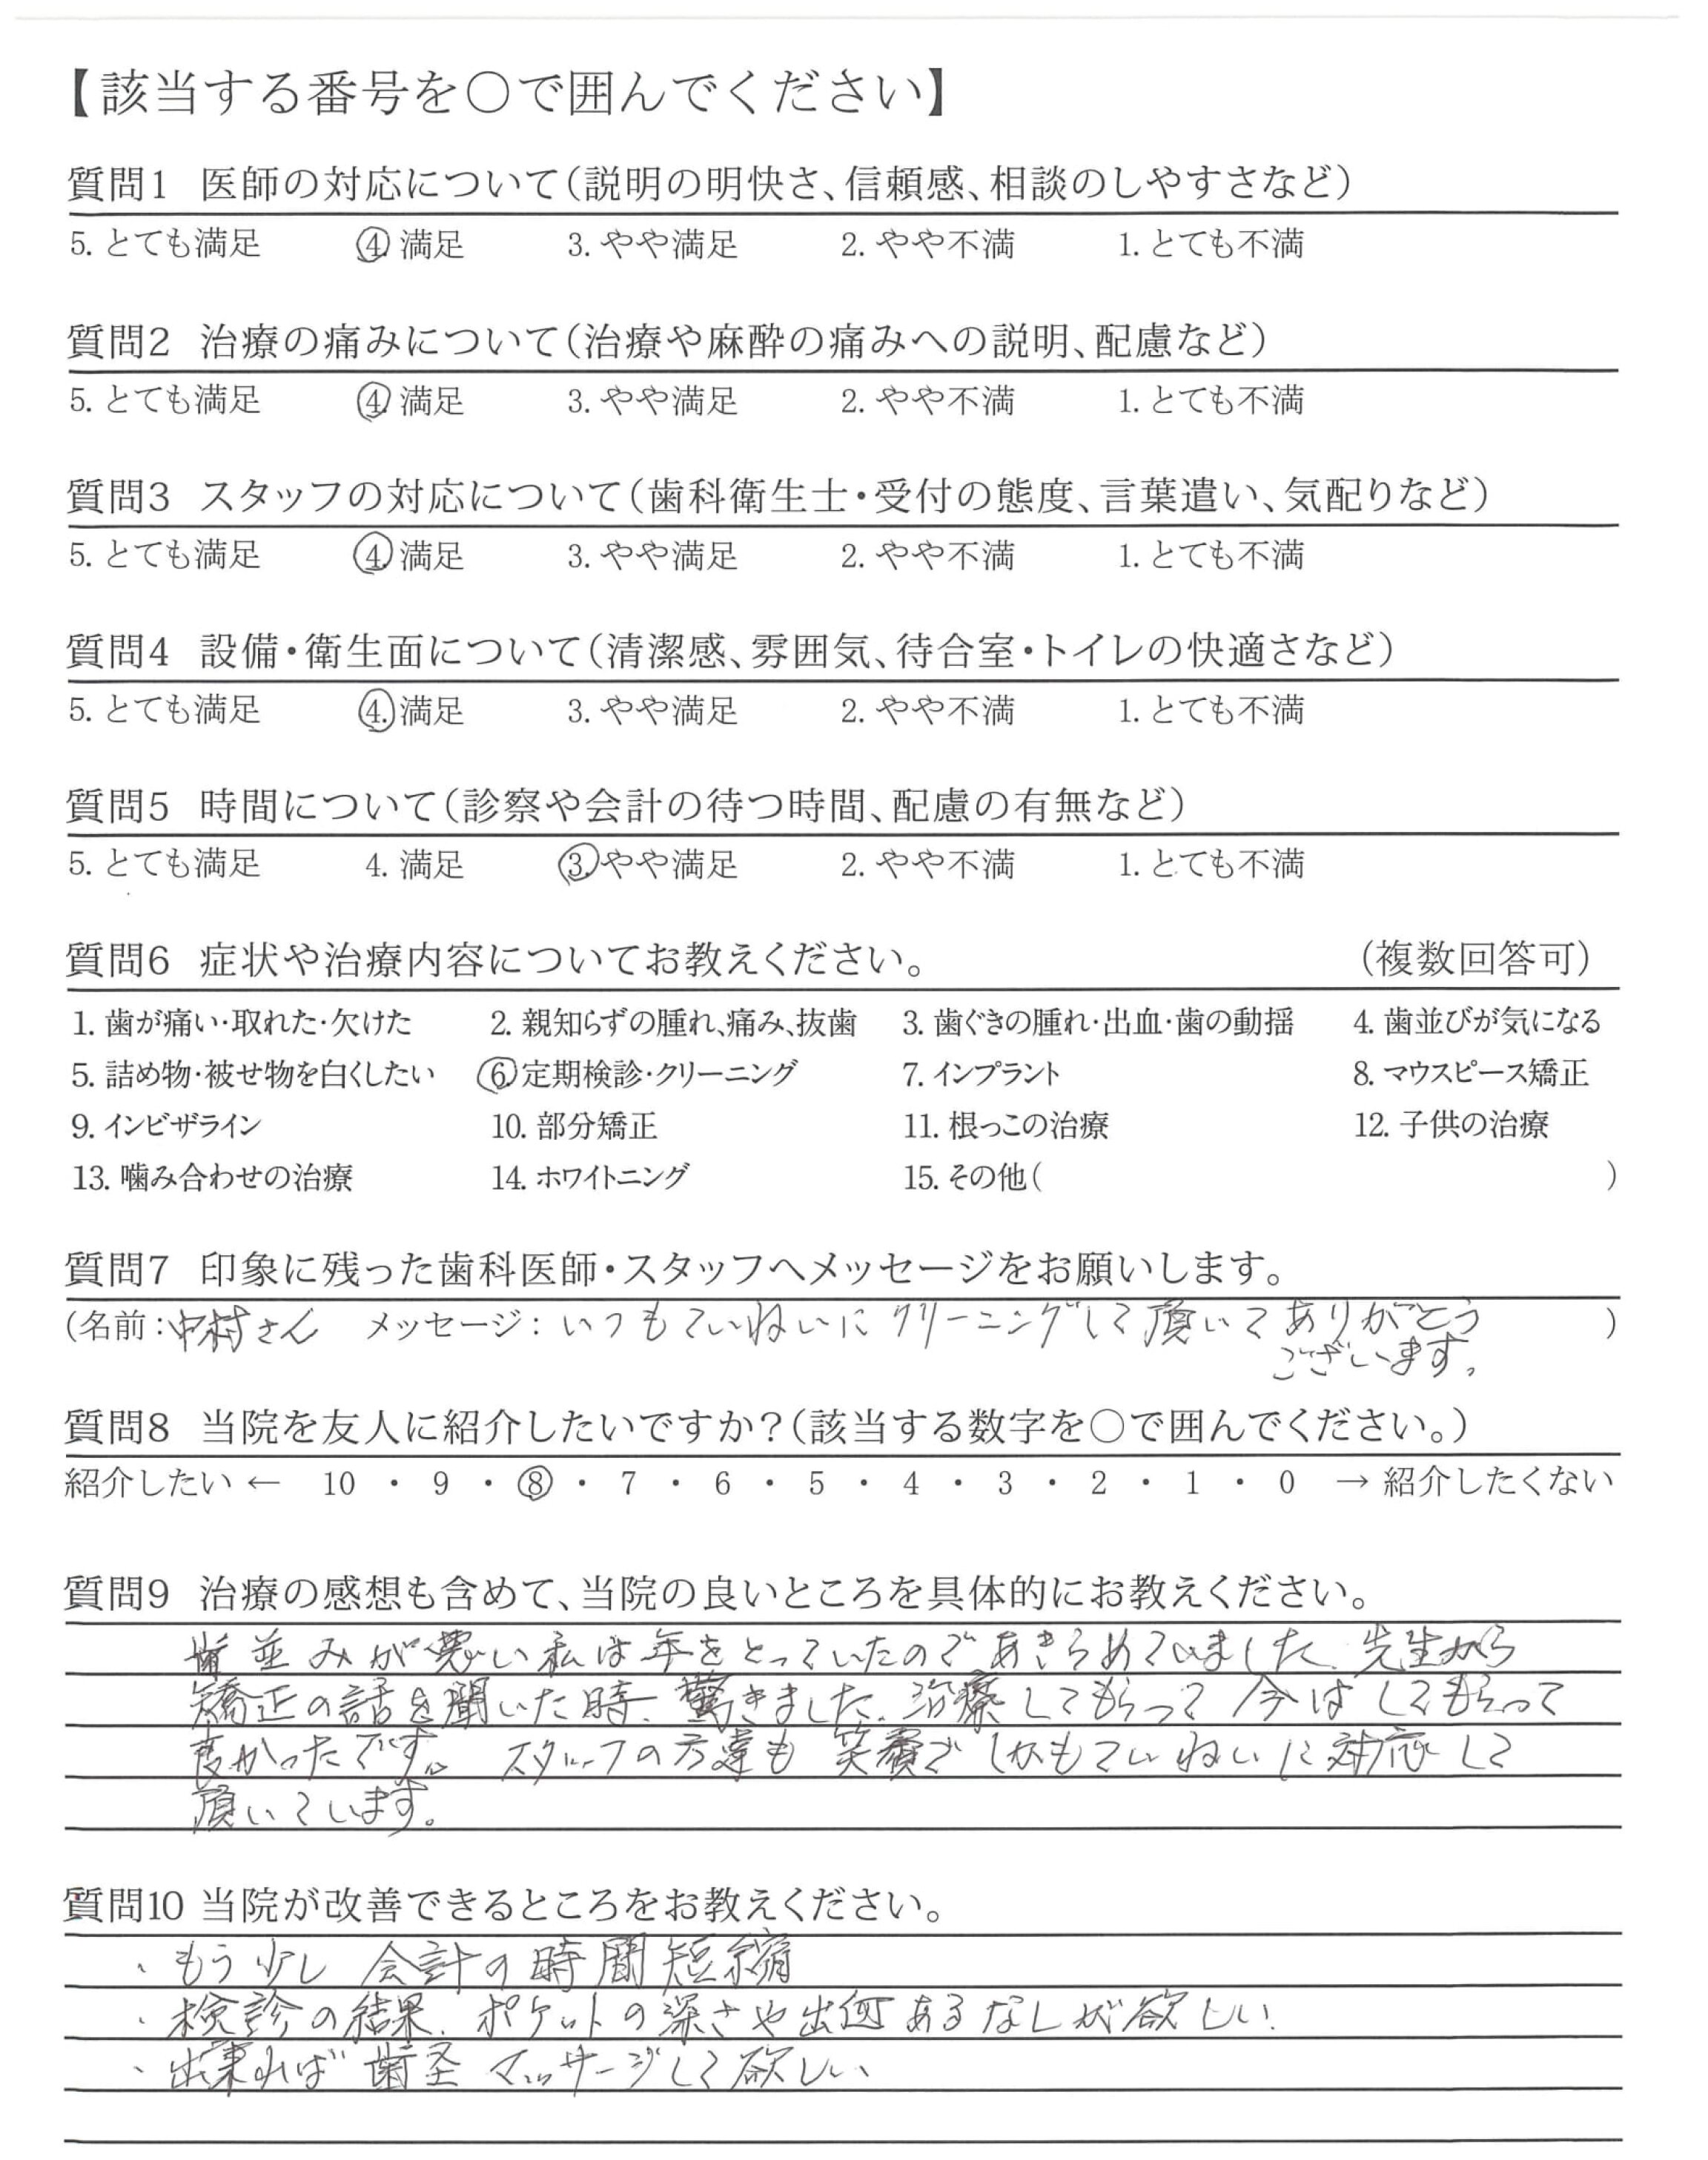 【該当する番号を〇で囲んでください】
質問1 医師の対応について(説明の明快さ、信頼感、相談のしやすさなど)
5. とても満足 4. 満足 3. やや満足 2. やや不満 1. とても不満
質問2 治療の痛みについて(治療や麻酔の痛みへの説明、配慮など)
5. とても満足 4. 満足 3. やや満足 2. やや不満 1. とても不満
質問3 スタッフの対応について(歯科衛生士・受付の態度、言葉遣い、気配りなど)
5. とても満足 4. 満足 3. やや満足 2. やや不満 1. とても不満
質問4 設備・衛生面について(清潔感、雰囲気、待合室・トイレの快適さなど)
5. とても満足 4. 満足 3. やや満足 2. やや不満 1. とても不満
質問5 時間について(診察や会計の待つ時間、配慮の有無など)
5. とても満足 4. 満足 3. やや満足 2. やや不満 1. とても不満
質問6 症状や治療内容についてお教えください。 (複数回答可)
1. 歯が痛い・取れた・欠けた 2. 親知らずの腫れ、痛み、抜歯 3. 歯ぐきの腫れ・出血・歯の動揺 4. 歯並びが気になる
5. 詰め物・被せ物を白くしたい 6. 定期検診・クリーニング 7. インプラント 8. マウスピース矯正
9. インビザライン 10. 部分矯正 11. 根っこの治療 12. 子供の治療
13. 噛み合わせの治療 14. ホワイトニング 15. その他( )
質問7 印象に残った歯科医師・スタッフへメッセージをお願いします。
(名前:中村さん メッセージ:いつもていねいにクリーニングして頂いてありがとう )
ございます。
質問8 当院を友人に紹介したいですか?(該当する数字を〇で囲んでください。)
紹介したい ← 10 ・ 9 ・ 8 ・ 7 ・ 6 ・ 5 ・ 4 ・ 3 ・ 2 ・ 1 ・ 0 → 紹介したくない
質問9 治療の感想も含めて、当院の良いところを具体的にお教えください。
歯並みが悪い私は年をとっていたのであきらめていました、先生から
矯正の話を聞いた時、驚きました、治療してもらって今はしてもらって
良かったです。スタッフの方達も笑顔でしかもていねいに対応して
頂いています。
質問10 当院が改善できるところをお教えください。
・もう少し会計の時間短縮
・検診の結果、ポケットの深さや出血あるなしが欲しい
・出来れば歯茎マッサージして欲しい